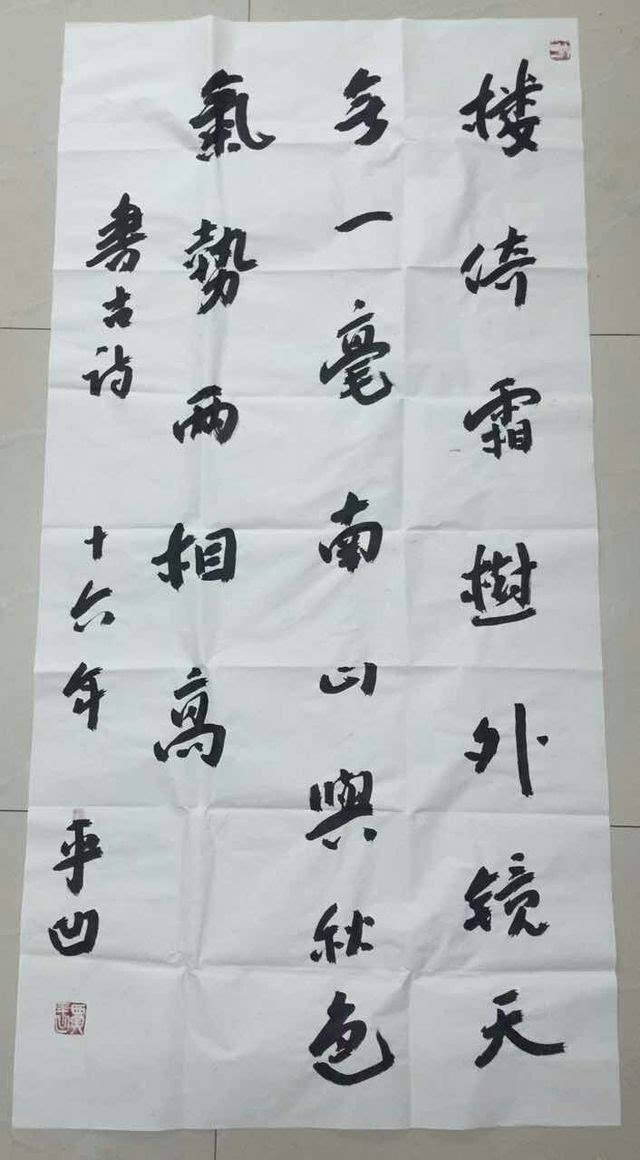 楼倚霜樹外镜天
無一毫南山與秋色
氣勢兩相高
書古诗 十六年 平凹